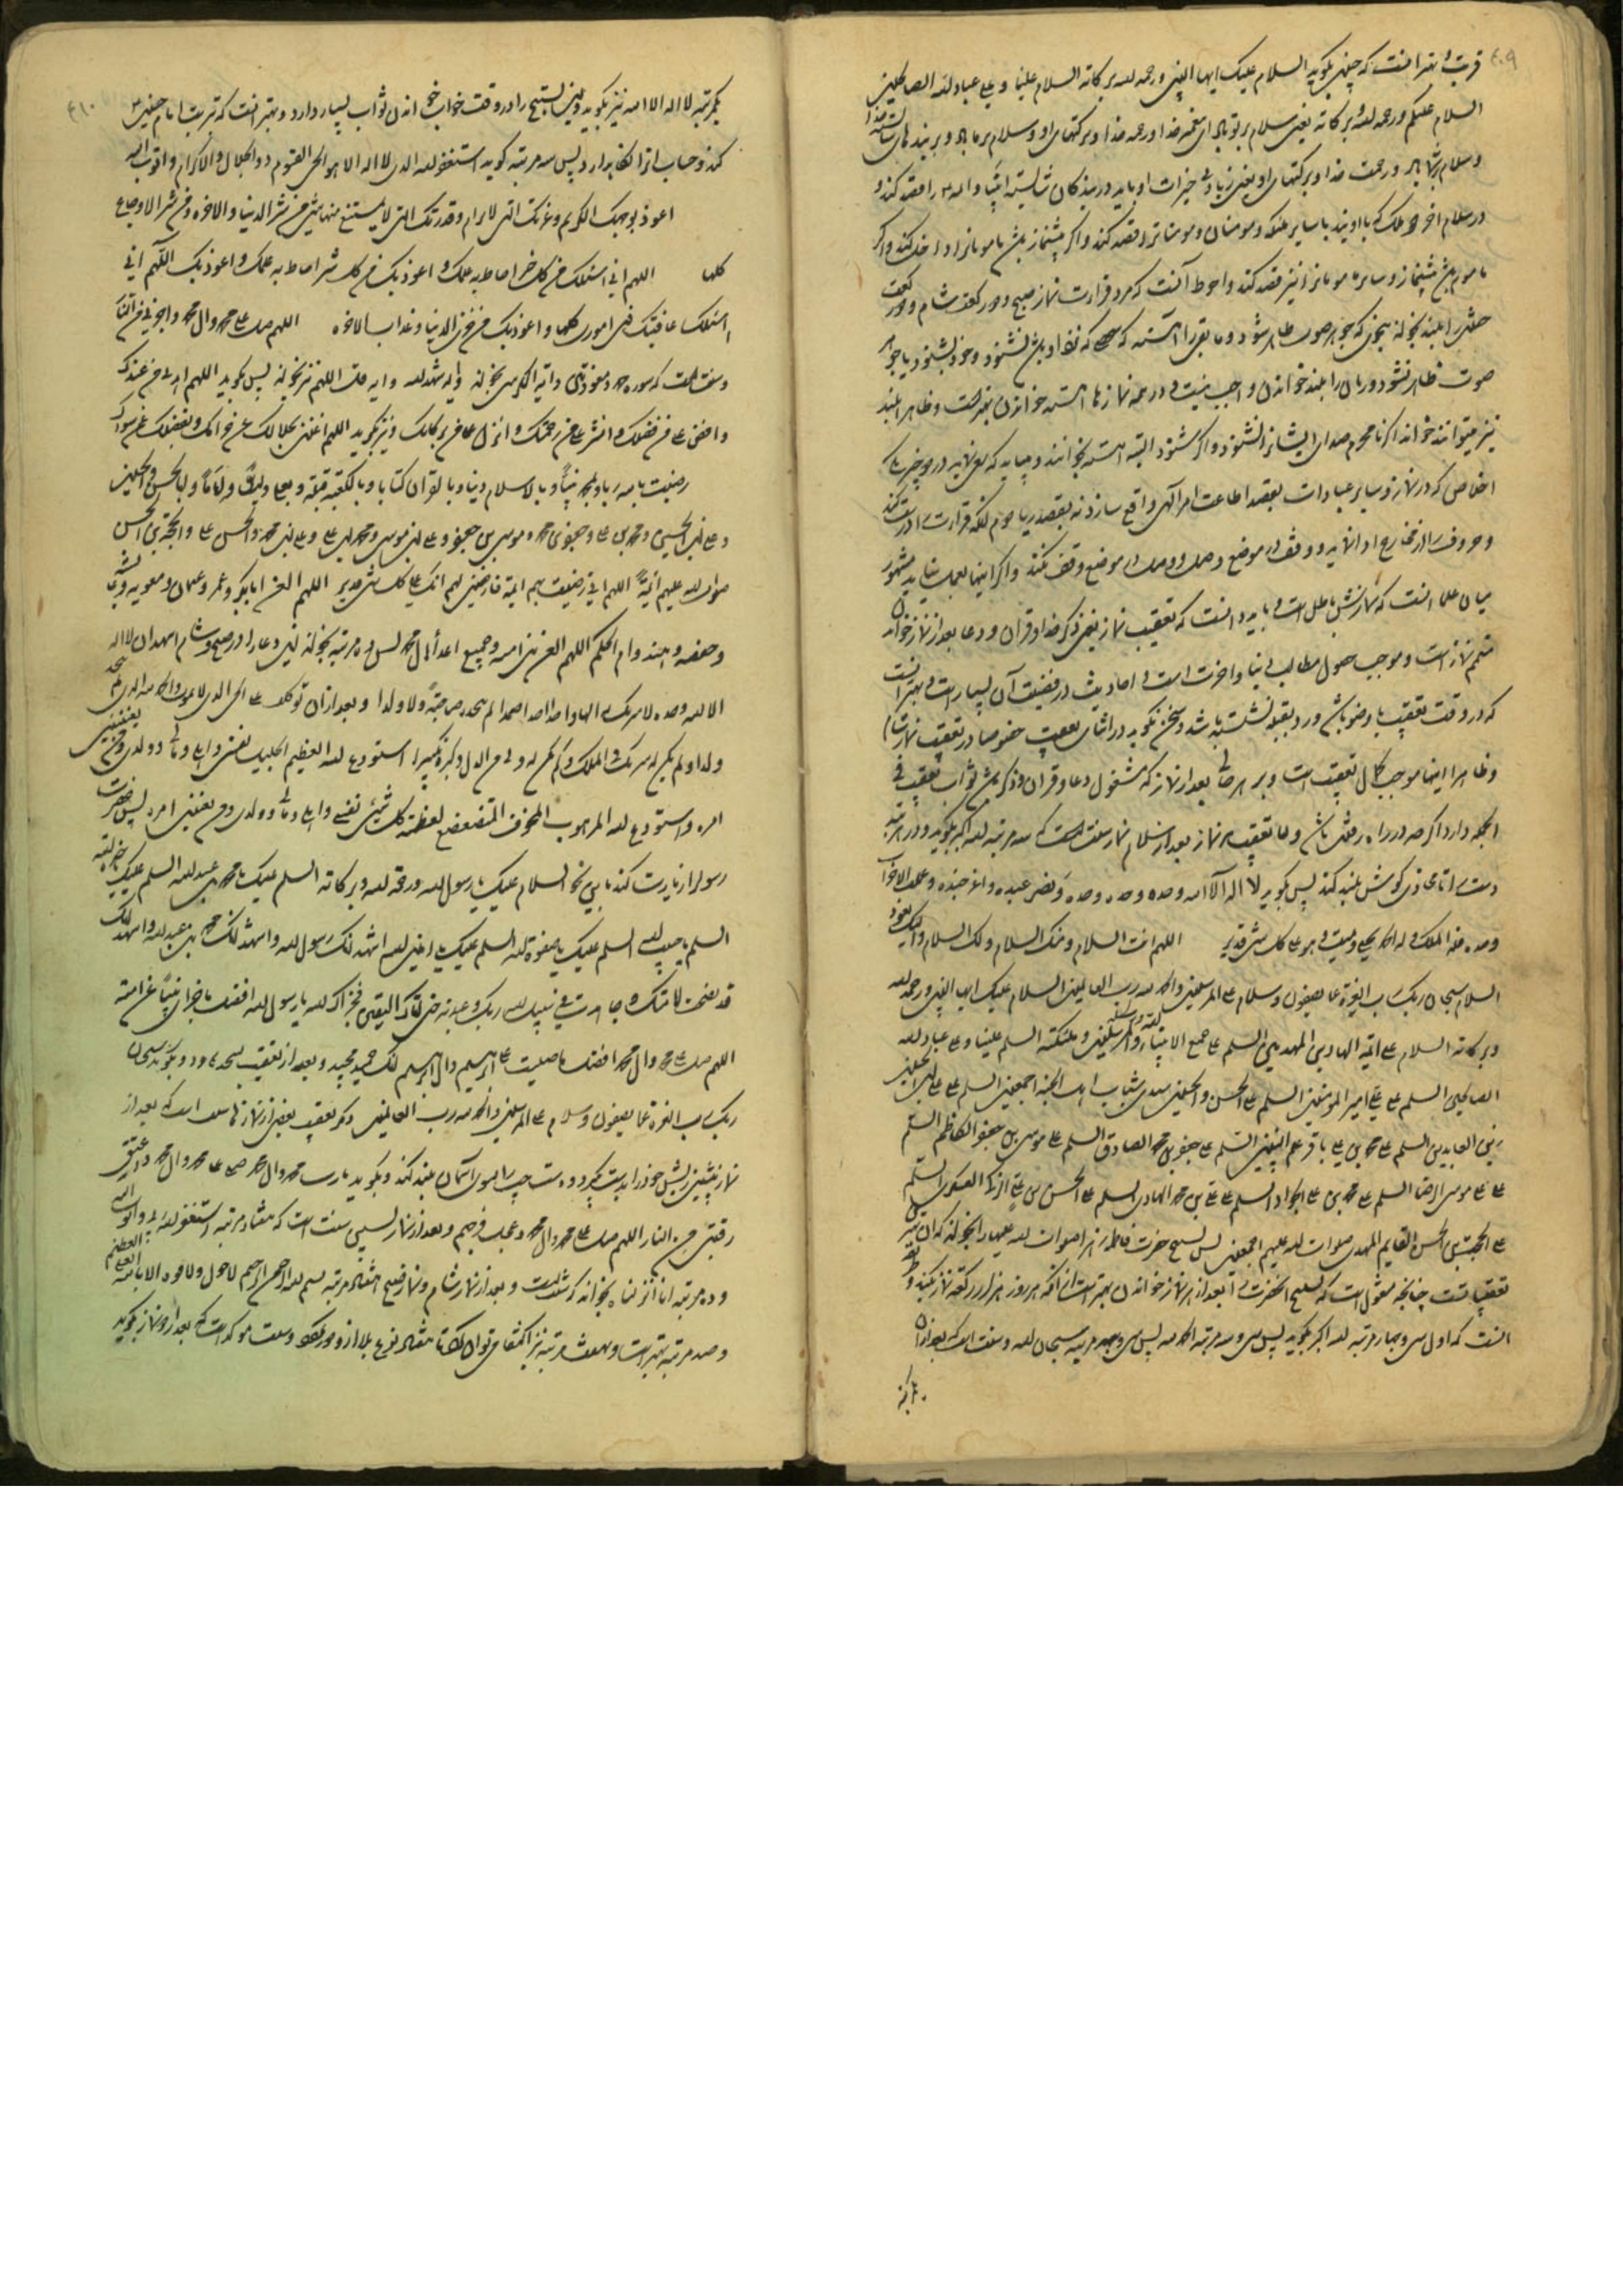 ۴۰۹
قربت و بهتر آنست که چنین بگوید السلام علیک ایها النبی ورحمه لله وبرکاته السلام علینا و علی عباد لله الصالحین
السلام علیکم ورحمه لله وبرکاته یعنی سلام بر تو باد ای پیغمبر خدا ورحمه خدا وبرکتهای او وسلام بر ما باد وبر بندهای شایسته خدا
وسلام بر شما باد ورحمت خدا وبرکتهای او یعنی زیادتی خیرات او باید در بندکان شایسته انبیا وائمه را قصد کند و
در سلام اخر دو ملک که با اویند با سایر ملئکه ومومنان ومومنات را قصد کند واکر پیشنماز باشد مامومانرا داخل کند واکر
ماموم باشد پیشنماز وسایر مامومانرا نیز قصد کند واحوط آنست که مرد قرائت نماز صبح ودو رکعت شام ودو رکعت
خفتن را بلند بخواند بنحوی که جوهر صوت ظاهر شود وما بقی را آهسته که
صوت ظاهر نشود وزنان را بلند خواندن واجب نیست و در همه نمازها آهسته خواندن بهتر است وظاهرا بلند
نیز میتوانند خواند اکر نامحرم صدای ایشانرا نشنود واکر شنود البته آهسته بخوانند
اخلاص که در نماز وسایر عبادات بقصد اطاعت امر الهی واقع سازد نه بقصد ریا
وحروف را از مخارج ادا نماید ووقف در موضع وصل ووصل در موضع وقف نکند واکر اینها بعمل نیاید مشهور
میان علما آنست که نمازش باطل است و باید دانست که تعقیب نماز یعنی ذکر خدا وقران ودعا بعد از نماز خواندن
متمم نماز است وموجب حصول مطالب دنیا واخرت است و احادیث در فضیلت آن بسیار است و بهتر آنست
که در وقت تعقیب با وضو باشد ورو بقبله نشسته باشد وسخن نکوید در اثنای تعقیب خصوصا در تعقیب نماز شام
وظاهرا اینها موجب کمال تعقیب است وبر هر حالی بعد از نماز که مشغول دعا وقران وذکر باشد ثواب تعقیب فی
الجمله دارد اکرچه در راه رفتن باشد واما تعقیب نماز بعد از سلام نماز سنت است که سه مرتبه لله اکبر بکوید ودر هر مرتبه
دست را تا محاذی کوش بلند کند پس بکوید لا اله الا الله وحده وحده وحده ونصر عبده واعز جنده وغلب الاحزاب
وحده فله الملک وله الحمد یحیی ویمیت وهو علی کل شی قدیر اللهم انت السلام ومنک السلام ولک السلام والیک یعود
السلام سبحان ربک رب العزة عما یصفون وسلام علی المرسلین والحمد لله رب العالمین السلام علیک ایها النبی ورحمه لله
وبرکاته السلام علی ائمه الهادین المهدیین السلم علی جمیع الانبیاء والمرسلین وملئکته السلم علینا وعلی عباد لله
الصالحین السلم علی علی امیر المومنین السلم علی الحسن والحسین سیدی شباب اهل الجنة اجمعین السلم علی علی بن الحسین
زین العابدین السلم علی محمد بن علی باقر علم النبیین السلم علی جعفر بن محمد الصادق السلم علی موسی بن جعفر الکاظم السلم
علی علی موسی الرضا السلم علی محمد بن علی الجواد السلم علی علی بن محمد الهادی السلم علی الحسن بن علی الزکی العسکری السلم
علی الحجت بن الحسن القایم المهدی صلوات لله علیهم اجمعین پس تسبیح حضرت فاطمه زهرا صلوات لله علیها را بخواند که ان بهتر
تعقیبات است چنانچه منقول است که تسبیح انحضرت را بعد از هر نماز خواندن بهتر است از انکه هر روز هزار رکعت نماز بکنند
آنست که اول سی وچهار مرتبه لله اکبر بکوید پس سی وسه مرتبه الحمد لله پس سی وسه مرتبه سبحان لله وسنت است که بعد از ان
۴۱۰
یکمرتبه لا اله الا الله نیز بکوید واین تسبیح را در وقت خواب خواندن ثواب بسیار دارد وبهتر آنست که بتربت امام حسین
کند وحساب انرا نکاه دارد پس سه مرتبه کوید استغفر لله الذی لا اله الا هو الحی القیوم ذو الجلال والاکرام واتوب الیه
اعوذ بوجهک الکریم وعزتک التی لا ترام وقدرتک التی لا یمتنع منها شی من شر الدنیا والاخره ومن شر الاوجاع
کلها اللهم انی اسئلک من کل خیر احاط به علمک و اعوذ بک من کل شر احاط به علمک واعوذ بک اللهم انی
اسئلک عافیتک فی اموری کلها واعوذ بک من خزی الدنیا وعذاب الاخره اللهم صل علی محمد وال محمد واجرنی من النار
وسنت است که سوره حمد ومعوذتین وایه الکرسی بخواند وایه شهد لله وایه ملک اللهم نیز بخواند پس بکوید اللهم اهدنی من عندک
وافض علی من فضلک وانشر علی من رحمتک وانزل علی من برکاتک ونیز بکوید اللهم اغننی بحلالک عن حرامک وبفضلک عمن سواک
رضیت بالله ربا وبمحمد نبیا وبالاسلام دینا وبالقران کتابا وبالکعبه قبلة وبعلی ولیا واماما وبالحسن والحسین
وعلی بن الحسین ومحمد بن علی وجعفر بن محمد وموسی بن جعفر وعلی بن موسی ومحمد بن علی وعلی بن محمد والحسن بن علی والحجة بن الحسن
صلوات لله علیهم ائمة اللهم انی رضیت بهم ائمة فارضنی لهم انک علی کل شی قدیر اللهم العن ابابکر وعمر وعثمان ومعویه وعایشه
وحفصه وهند وام الحکم اللهم العن بنی امیه وجمیع اعداء ال محمد پس ده مرتبه بخواند این دعا را در صبح وشام اشهد ان لا اله
الا لله وحده لا شریک له الها واحدا احدا صمدا لم یتخذ صاحبة ولا ولدا وبعد از ان توکلت علی الحی الذی لا یموت والحمد لله الذی لم یتخذ
ولدا ولم یکن له شریک فی الملک ولم یکن له ولی من الذل وکبره تکبیرا استودع لله العظیم الجلیل نفسی واهلی ومالی وولدی ومن یعنینی
امره واستودع لله المرهوب المخوف المتضعضع لعظمته کل شیئ نفسی واهلی ومالی وولدی ومن یعنینی امره پس حضرت
رسول را زیارت کند باین نحو السلام علیک یا رسول لله ورحمة لله وبرکاته السلم علیک یا محمد بن عبد لله السلم علیک یا خیرة لله
السلم علیک یا حبیب لله السلم علیک یا صفوة لله السلم علیک یا امین لله اشهد انک رسول لله واشهد انک محمد بن عبد لله واشهد انک
قد نصحت لامتک وجاهدت فی سبیل لله ربک وعبدته حتی اتاک الیقین فجزاک لله یا رسول لله افضل ما جزی نبیا عن امته
اللهم صل علی محمد وال محمد افضل ما صلیت علی ابرهیم وال ابرهیم انک حمید مجید وبعد از تعقیب سجده رود وبکوید سبحان
ربک رب العزة عما یصفون وسلام علی المرسلین والحمد لله رب العالمین
نماز پیشین ریش خود را بدست بکیرد ودست چپ را بسوی آسمان بلند کند وبکوید یا رب محمد وال محمد صل علی محمد وال محمد واعتق
رقبتی من النار اللهم صل علی محمد وال محمد وعجل فرجهم وبعد از نماز پسین سنت است که هفتاد مرتبه استغفر لله ربی واتوب الیه
وده مرتبه انا انزلناه بخواند وبعد از نماز شام ونماز صبح هفتاد مرتبه بسم لله الرحمن الرحیم لاحول ولا قوه الا بالله العلی العظیم
وصد مرتبه بهتر است وهفت مرتبه نیز اکتفا می توان کرد تا هفتاد نوع بلا از او دور کردد وسنت موکد است که بعد از نماز بکوید